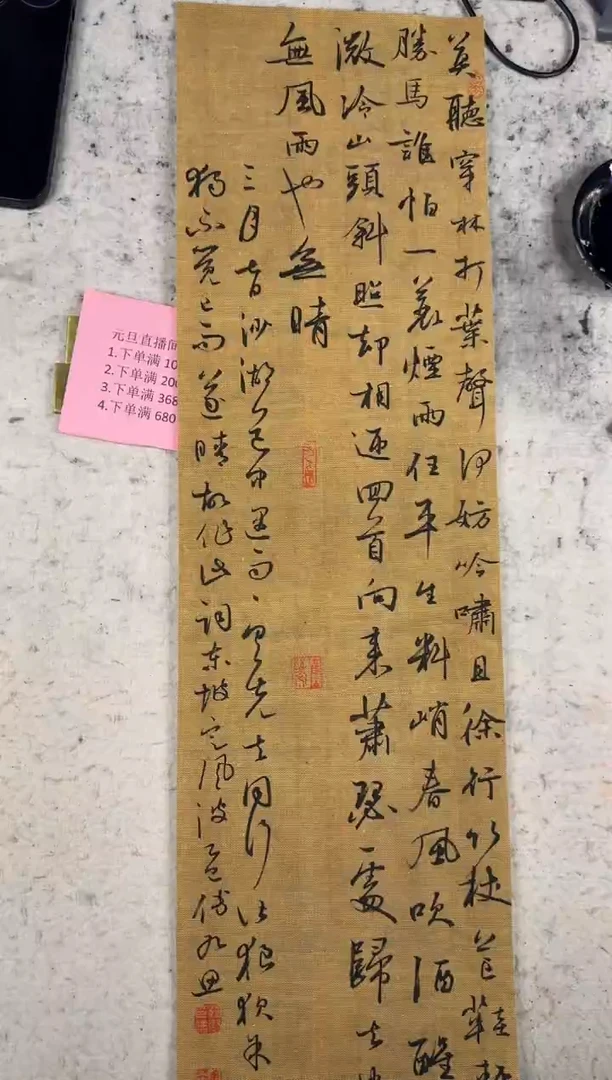 莫聽穿林打葉聲何妨吟嘯且徐行竹杖芒鞋輕
勝馬誰怕一蓑煙雨任平生料峭春風吹酒醒
微冷山頭斜照却相迎回首向来蕭瑟處歸去
無風雨也無晴
三月七日沙湖道中遇雨雨具先去同行皆狼狽余
獨不覺已而遂晴故作此詞東坡定風波
元旦直播间
1.下单满 10
2.下单满 20
3.下单满 368
4.下单满 680